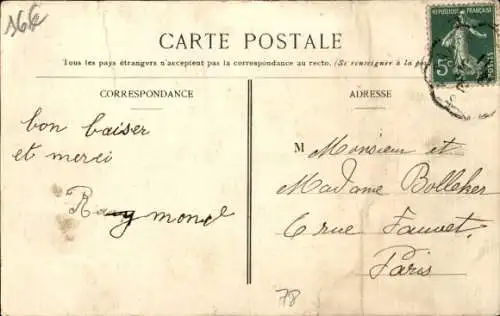 36€
CARTE POSTALE
Tous les pays étrangers n'acceptent pas la correspondance au recto. (Se renseigner à la
CORRESPONDANCE
ADRESSE
RÉPUBLIQUE FRANÇAISE
5c
POSTES
bon baiser
et merci
Raymond
M Monsieur et
Madame Bolleher
6 rue Fauvet
Paris
78